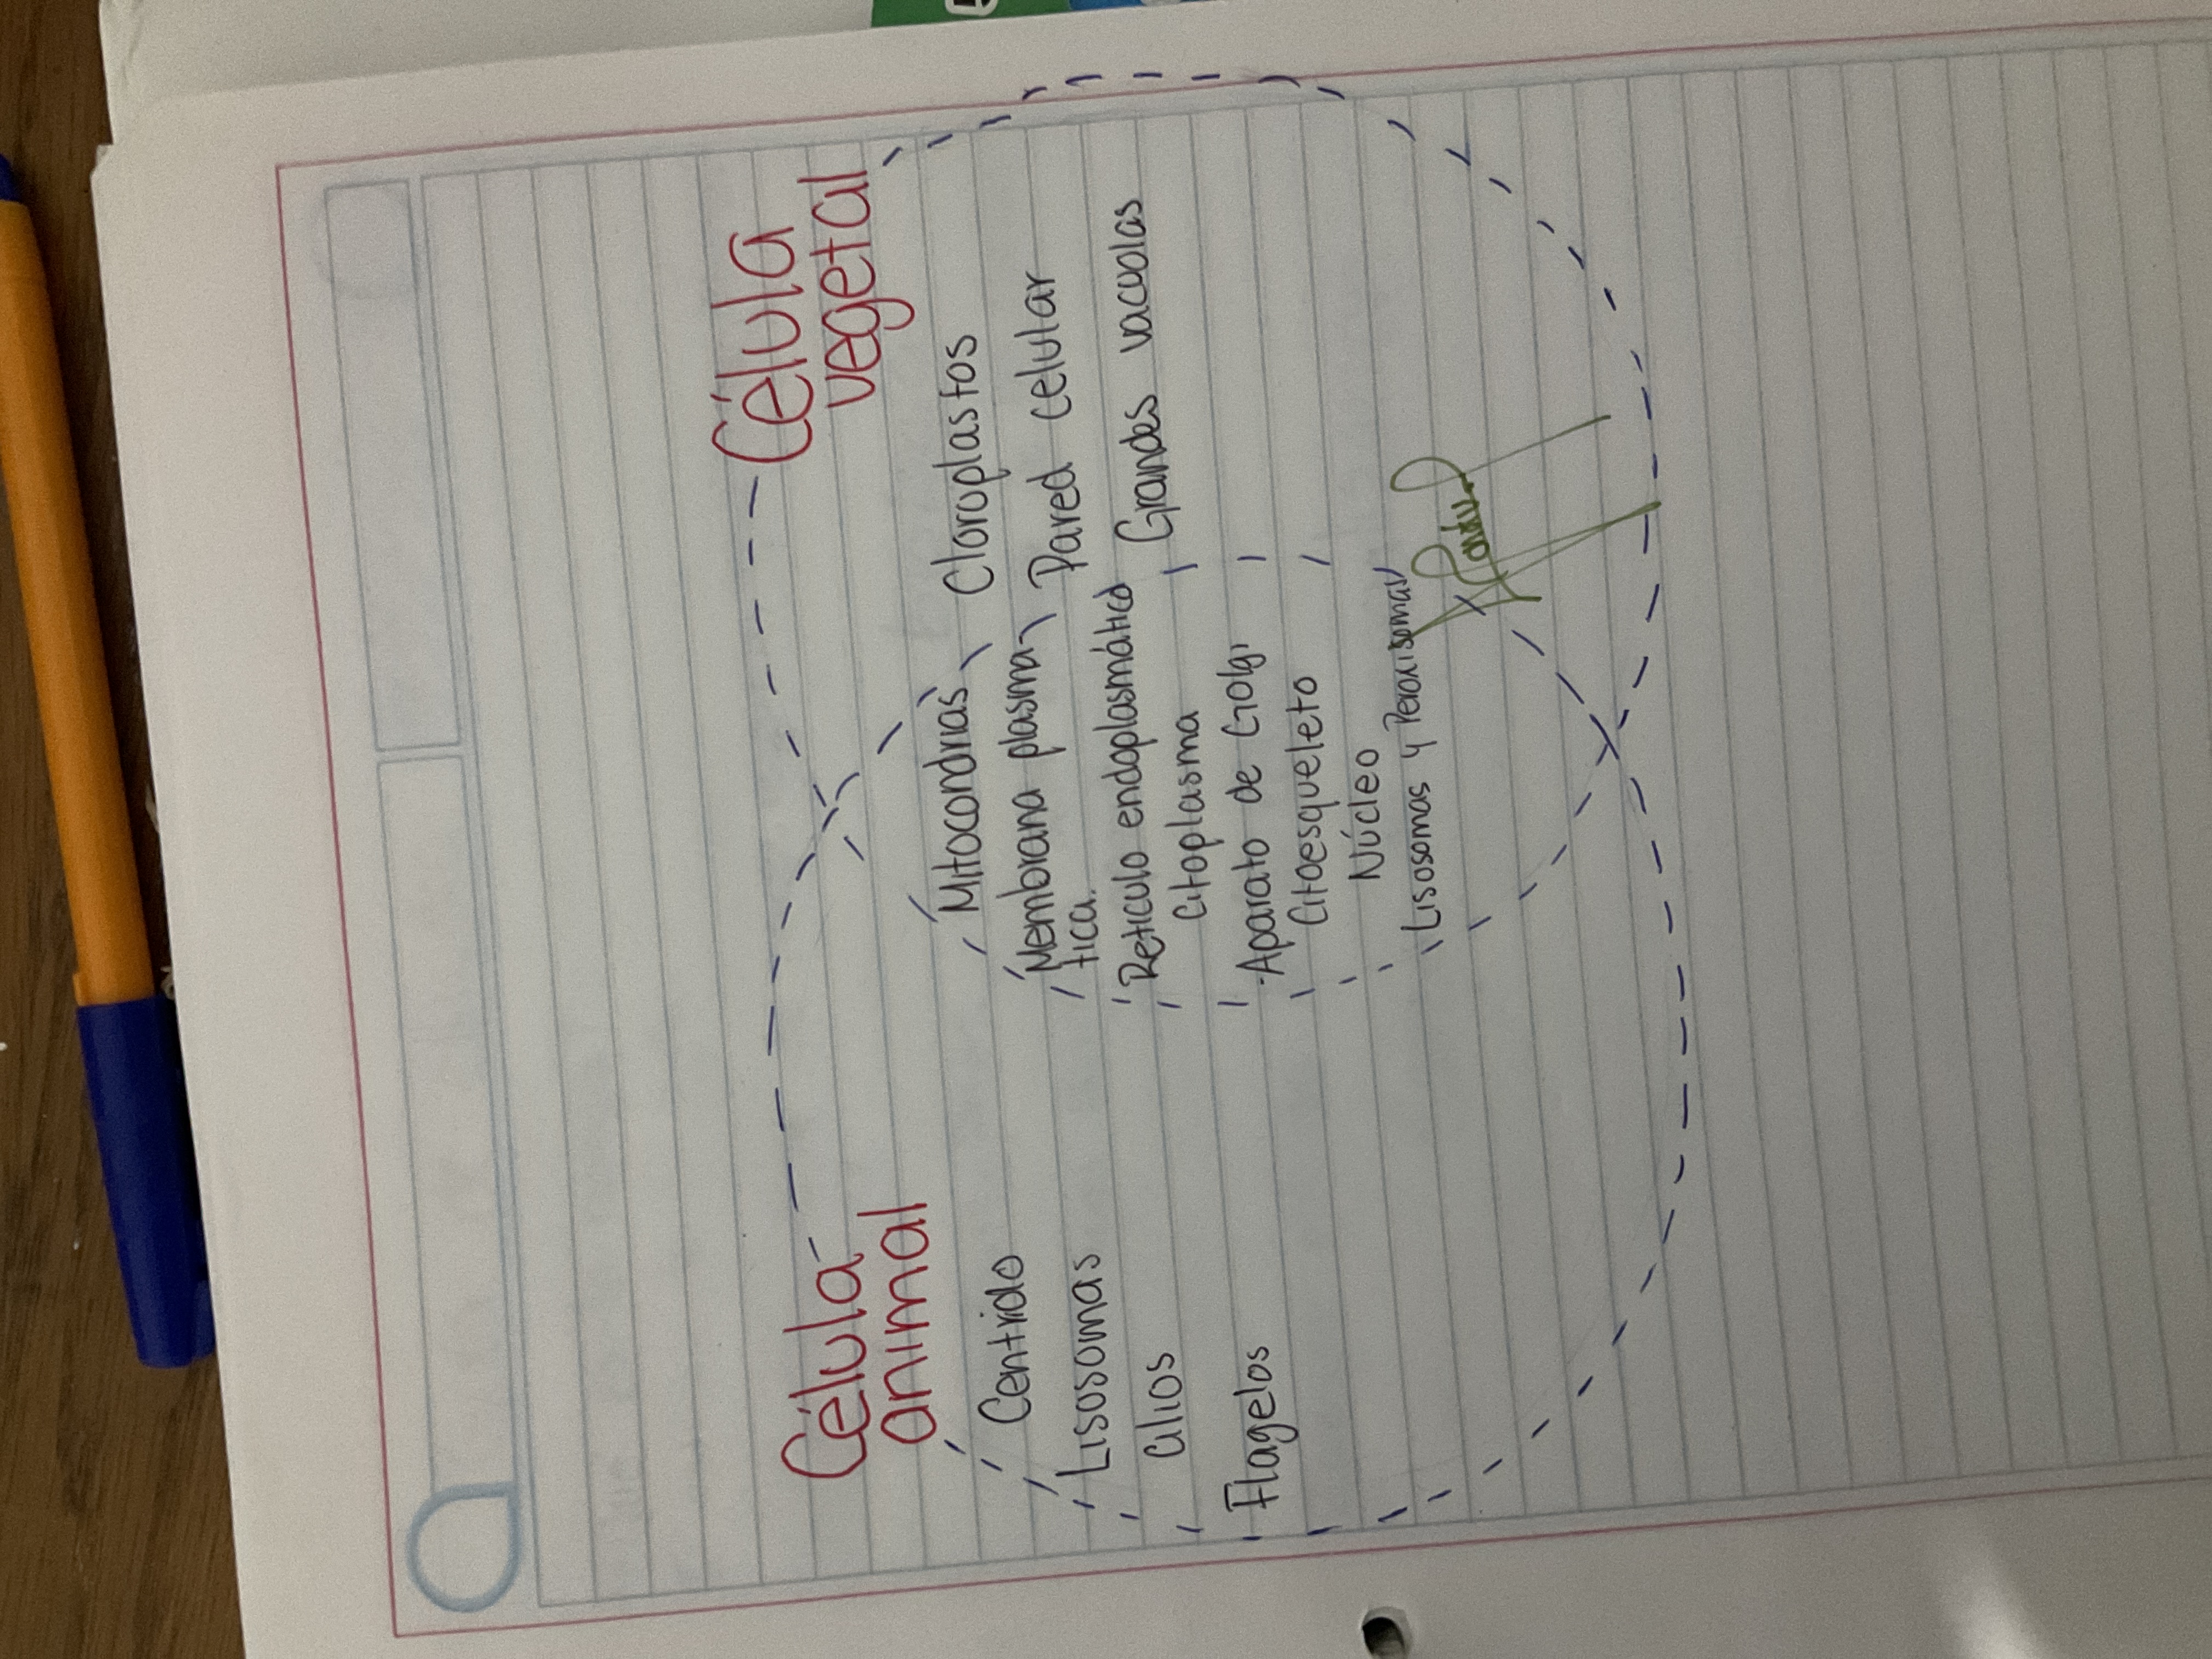 Célula
animal
Célula
vegetal
Centriolo
Lisosomas
Cilios
Flagelos
Mitocondrias
Membrana plasma-
tica.
Retículo endoplasmático
Citoplasma
-Aparato de Golgi
Citoesqueleto
Núcleo
Lisosomas y Peroxisomas
Cloroplastos
Pared celular
Grandes vacuolas